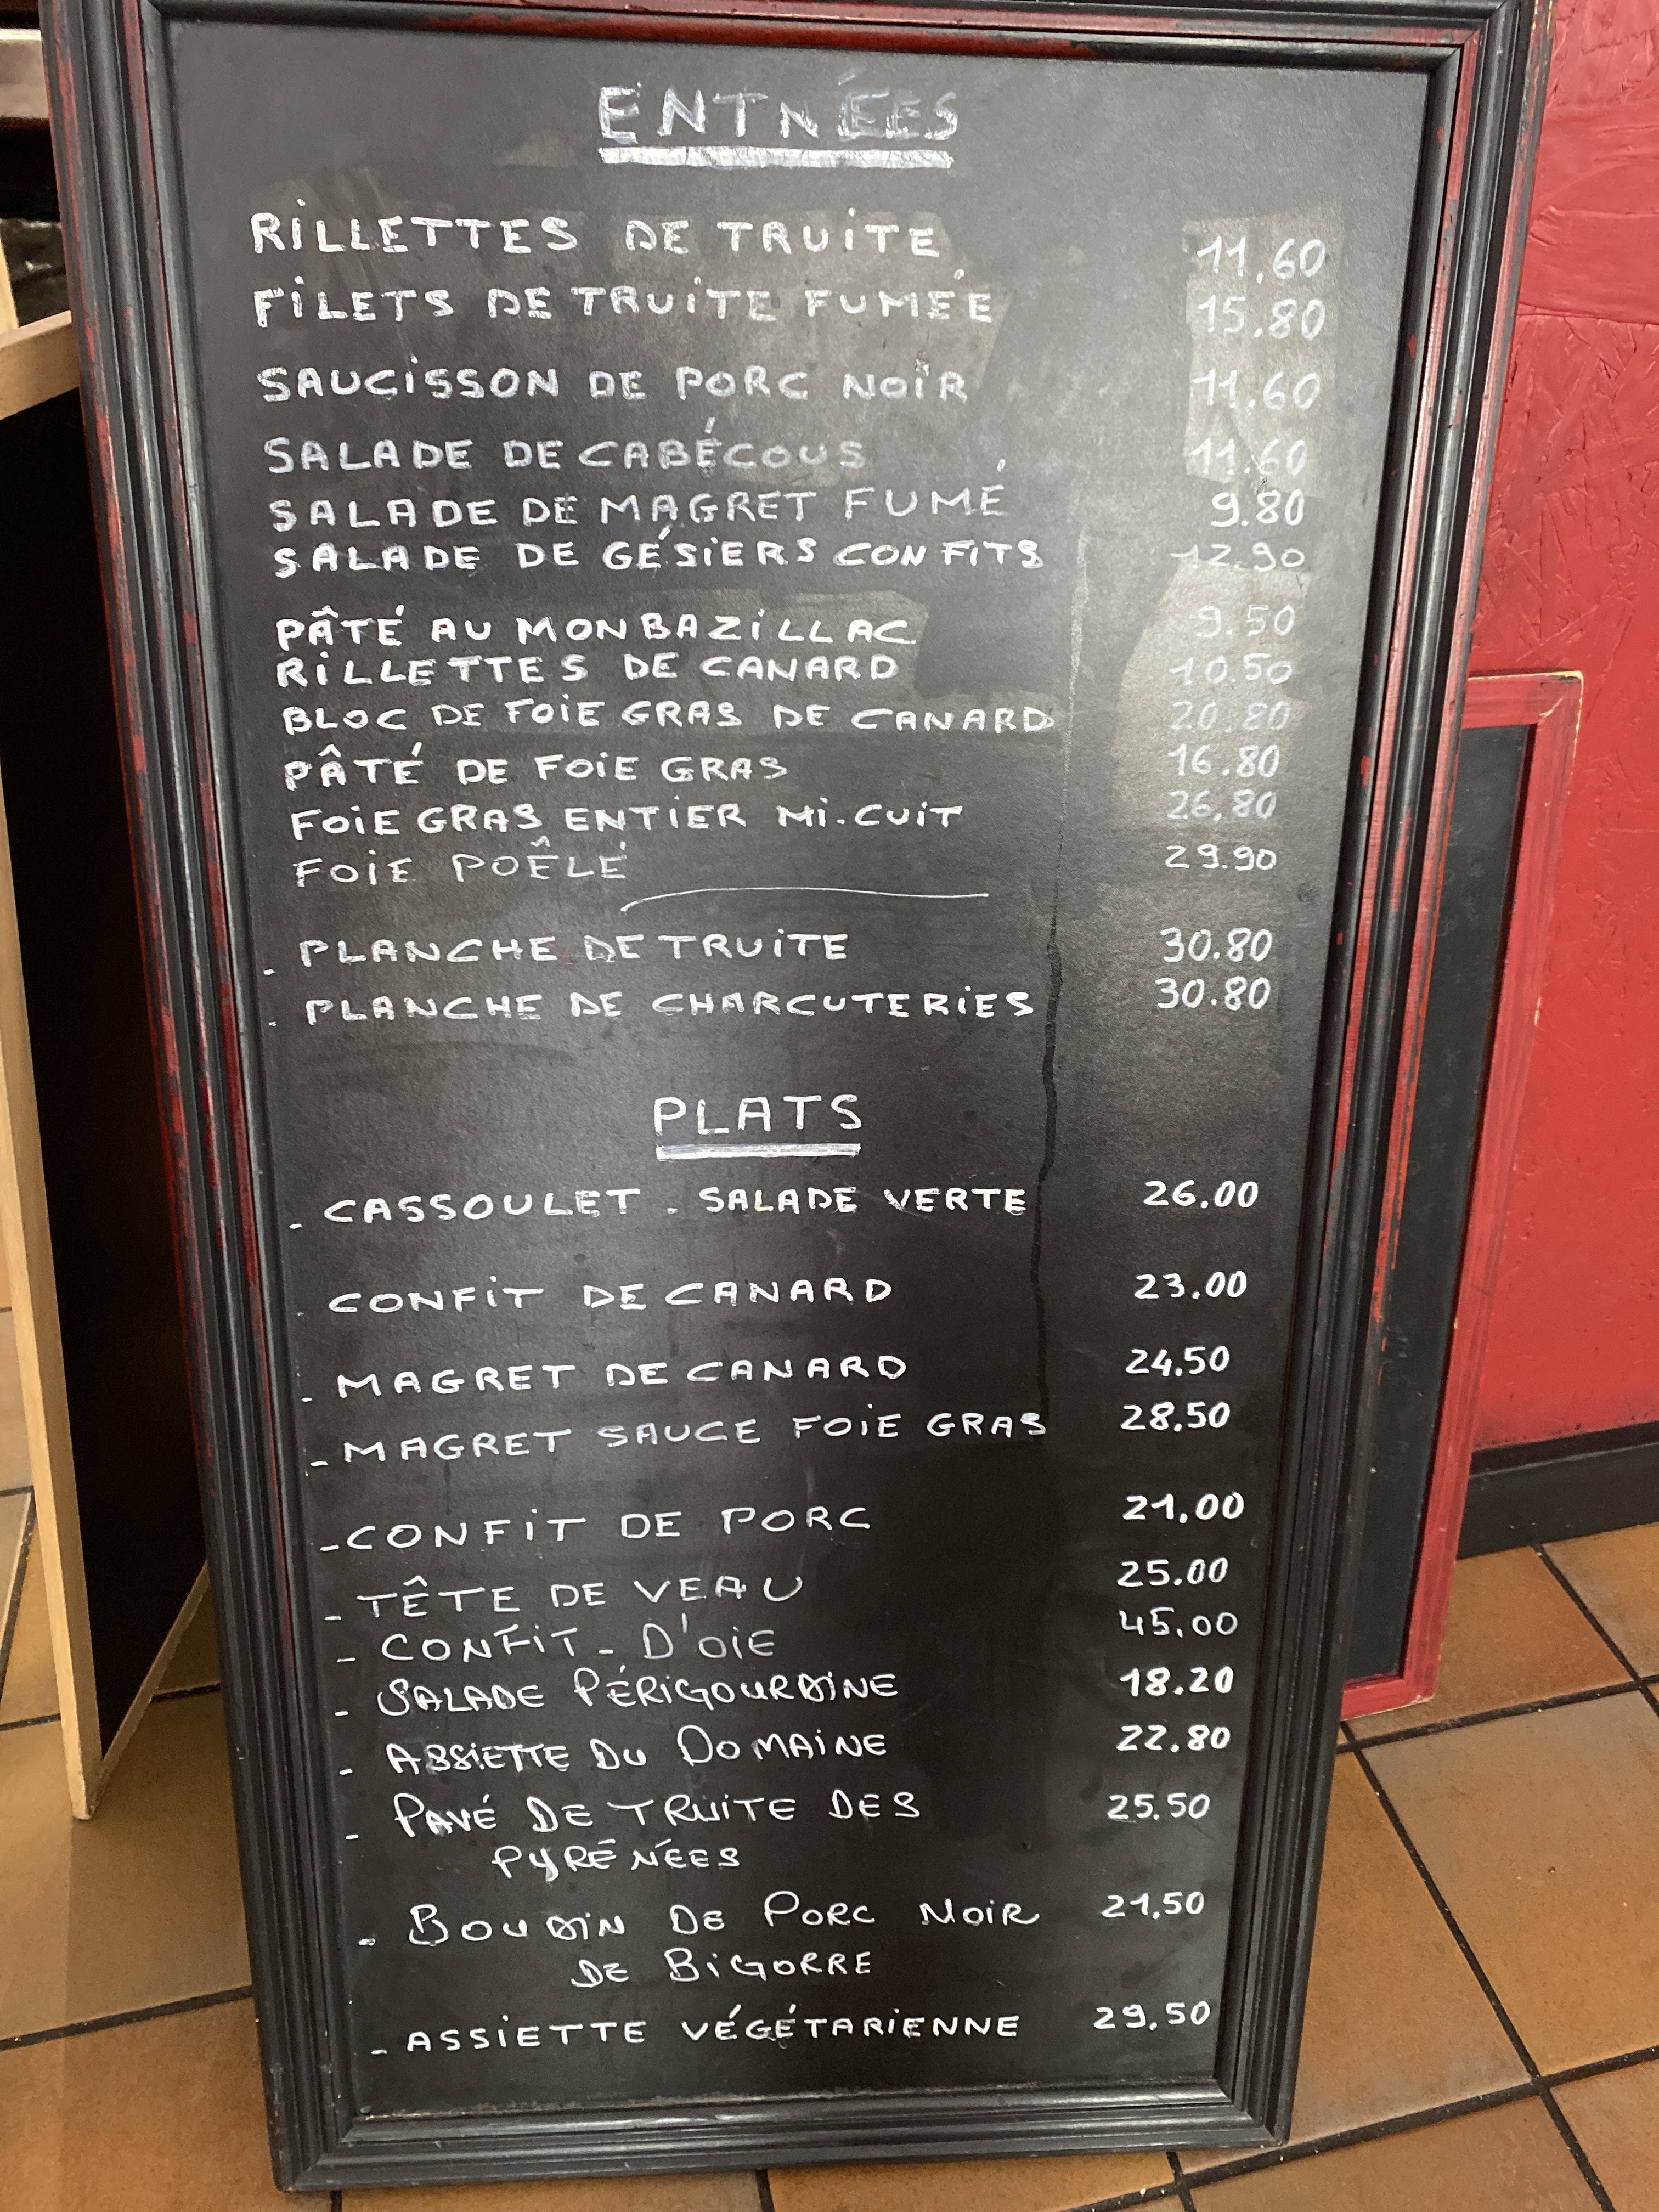 ENTRÉES
RILLETTES DE TRUITE 11.60
FILETS DE TRUITE FUMÉE 15.80
SAUCISSON DE PORC NOIR 11.60
SALADE DE CABÉCOUS 11.60
SALADE DE MAGRET FUMÉ 9.80
SALADE DE GÉSIERS CONFITS 12.90
PÂTÉ AU MONBAZILLAC 9.50
RILLETTES DE CANARD 10.50
BLOC DE FOIE GRAS DE CANARD 20.80
PÂTÉ DE FOIE GRAS 16.80
FOIE GRAS ENTIER MI.CUIT 26.80
FOIE POÊLÉ 29.90
- PLANCHE DE TRUITE 30.80
- PLANCHE DE CHARCUTERIES 30.80
PLATS
- CASSOULET . SALADE VERTE 26.00
- CONFIT DE CANARD 23.00
- MAGRET DE CANARD 24.50
- MAGRET SAUCE FOIE GRAS 28.50
- CONFIT DE PORC 21.00
- TÊTE DE VEAU 25.00
- CONFIT - D'OIE 45.00
- SALADE PÉRIGOURDINE 18.20
- ASSIETTE DU DOMAINE 22.80
- PAVÉ DE TRUITE DES 25.50
PYRÉNÉES
- BOUDIN DE PORC NOIR 21.50
DE BIGORRE
- ASSIETTE VÉGÉTARIENNE 29.50